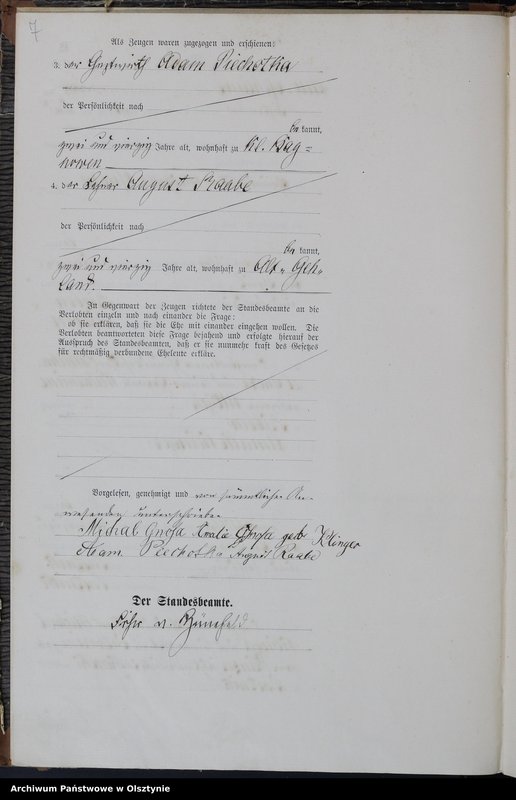 7
Als Zeugen waren zugezogen und erschienen:
3. der Gastwirth Adam Piechotka
der Persönlichkeit nach
be kannt,
zwei und vierzig Jahre alt, wohnhaft zu Kl. Bag=
nowen
4. der August Raabe
der Persönlichkeit nach
be kannt,
zwei und vierzig Jahre alt, wohnhaft zu Alt-Geh-
land.
In Gegenwart der Zeugen richtete der Standesbeamte an die
Verlobten einzeln und nach einander die Frage:
ob sie erklären, daß sie die Ehe mit einander eingehen wollen. Die
Verlobten beantworteten diese Frage bejahend und erfolgte hierauf der
Ausspruch des Standesbeamten, daß er sie nunmehr kraft des Gesetzes
für rechtmäßig verbundene Eheleute erkläre.
Vorgelesen, genehmigt und von sämmtlichen An-
wesenden unterschrieben
Michal Gnosa geb Klinger
Adam Piechotka August Raabe
Der Standesbeamte.
v.
Archiwum Państwowe w Olsztynie